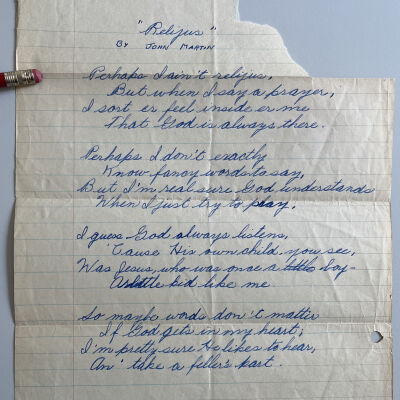 "Relijus"
BY JOHN MARTIN
Perhaps I ain't relijus,
But when I say a prayer,
I sort er feel inside er me
That God is always there.
Perhaps I don't exactly
Know fancy words to say,
But I'm real sure God understands
When I just try to pray.
I guess God always listens,
'Cause His own child, you see,
Was Jesus, who was once a little boy-
A little kid like me.
So maybe words don't matter
If God gets in my heart;
I'm pretty sure He likes to hear,
An' take a feller's part.